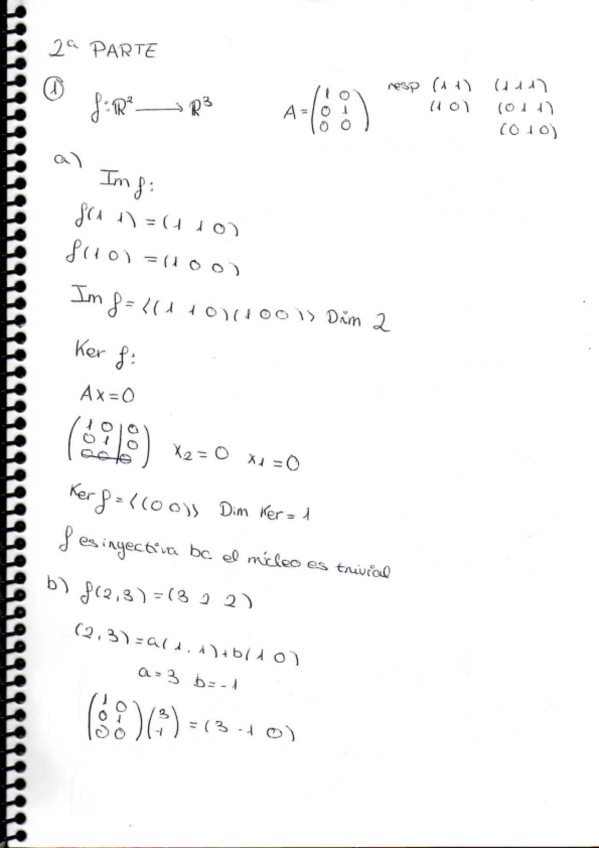 2ª PARTE
① f: ℝ² → ℝ³ A = (1 0 / 0 1 / 0 0) resp (1 1) (1 0) (1 1 1) (0 1 1) (0 1 0)
a)
Im f:
f(1 1) = (1 1 0)
f(1 0) = (1 0 0)
Im f = <(1 1 0)(1 0 0)> Dim 2
Ker f:
Ax=0
(1 0 | 0 / 0 1 | 0 / 0 0 | 0) x₂ = 0 x₁ = 0
Ker f = <(0 0)> Dim Ker = 1
f es inyectiva bc el núcleo es trivial
b) f(2,3) = (3 2 2)
(2,3) = a(1, 1)+b(1 0)
a=3 b=-1
(1 0 / 0 1 / 0 0)(3 / -1) = (3 -1 0)